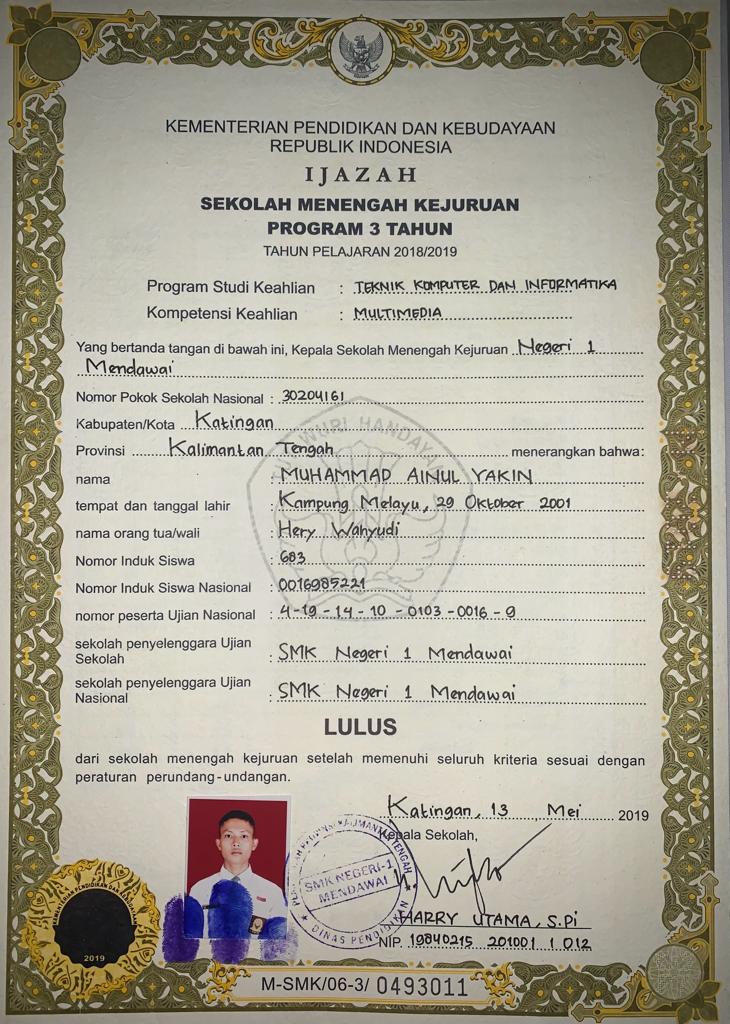 KEMENTERIAN PENDIDIKAN DAN KEBUDAYAAN
REPUBLIK INDONESIA
IJAZAH
SEKOLAH MENENGAH KEJURUAN
PROGRAM 3 TAHUN
TAHUN PELAJARAN 2018/2019
Program Studi Keahlian : TEKNIK KOMPUTER DAN INFORMATIKA
Kompetensi Keahlian : MULTIMEDIA
Yang bertanda tangan di bawah ini, Kepala Sekolah Menengah Kejuruan Negeri 1
Mendawai
Nomor Pokok Sekolah Nasional : 30204161
Kabupaten/Kota Katingan
Provinsi Kalimantan Tengah menerangkan bahwa:
nama : MUHAMMAD AINUL YAKIN
tempat dan tanggal lahir : Kampung Melayu, 29 Oktober 2001
nama orang tua/wali : Hery Wahyudi
Nomor Induk Siswa : 683
Nomor Induk Siswa Nasional : 0016985221
nomor peserta Ujian Nasional : 4-19-14-10-0103-0016-9
sekolah penyelenggara Ujian
Sekolah : SMK Negeri 1 Mendawai
sekolah penyelenggara Ujian
Nasional : SMK Negeri 1 Mendawai
LULUS
dari sekolah menengah kejuruan setelah memenuhi seluruh kriteria sesuai dengan
peraturan perundang-undangan.
Katingan, 13 Mei 2019
Kepala Sekolah,
SMK NEGERI-1
MENDAWAI
DINAS PENDIDIKAN
HARRY UTAMA, S.Pi
NIP. 19840215 201001 1 012
KEMENTERIAN PENDIDIKAN DAN KEBUDAYAAN
2019
M-SMK/06-3/ 0493011